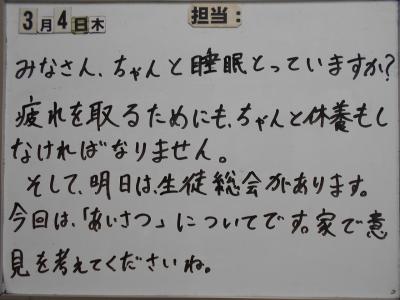 3月4日木 担当:
みなさん、ちゃんと睡眠とっていますか?
疲れを取るためにも、ちゃんと休養もし
なければなりません。
そして、明日は、生徒総会があります。
今回は、「あいさつ」についてです。家で意
見を考えてくださいね。